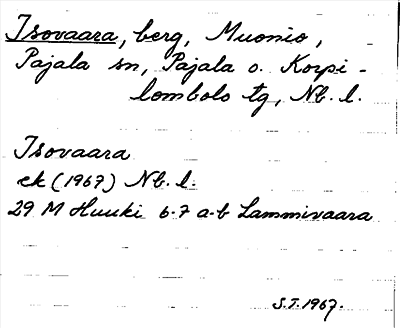 Isovaara, berg, Muonio,
Pajala sn, Pajala o. Korpi-
lombolo tg, Nb. l.
Isovaara
ek (1967) Nb. l.
29 M Huuki 6-7 a-b Lammivaara
S.T. 1967.